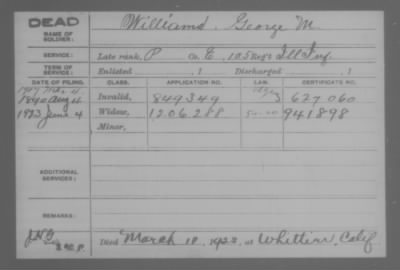 DEAD
NAME OF SOLDIER: Williams, George M.
SERVICE: Late rank, P Co. E, 105 Reg't Ill Inf.
TERM OF SERVICE: Enlisted , 1 Discharged , 1
DATE OF FILING. CLASS. APPLICATION NO. LAW. CERTIFICATE NO.
1890 Aug 4 Invalid, 849349 627060
1923 June 4 Widow, 1206288 941898
Minor,
ADDITIONAL SERVICES:
REMARKS:
Died March 18, 1923, at Whittier, Calif.